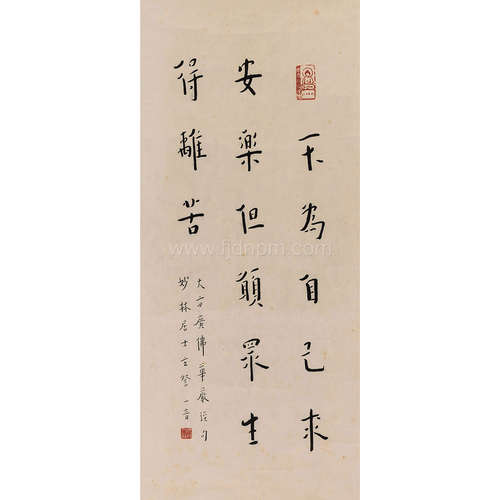 不為自己求
安樂但願眾生
得離苦
大方廣佛華嚴經句
妙林居士 一音
www.fjdnpm.com